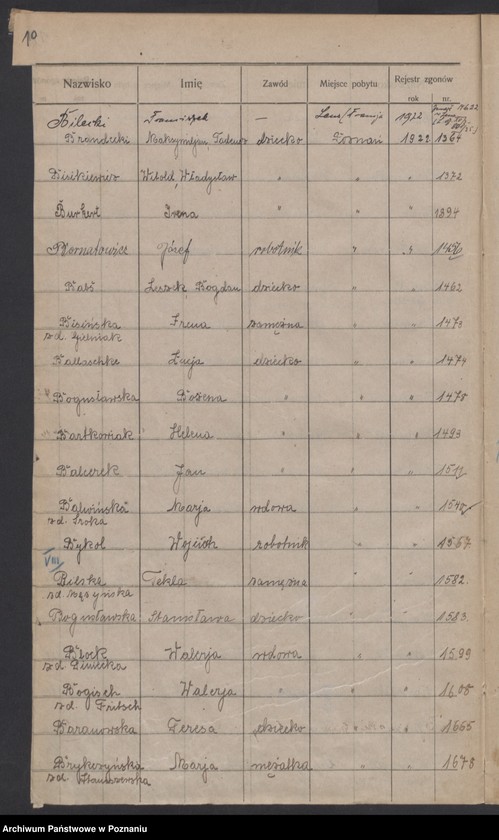 10
Nazwisko Imię Zawód Miejsce pobytu Rejestr zgonów
rok nr.
Bilecki Franciszek — Lens/Francja 1922
Brandicki Maksymiljan, Tadeusz dziecko Poznań 1922 1364
Witold, Władysław " " " 1372
Burkert Irena " " " 1394
Bernatowicz Józef robotnik " "
Baltˢ Leszek Bogdan dziecko " " 1462
Bisińska Irena zamężna " " 1473
zd. Gielniak
Kallaschke Łucja dziecko " " 1474
Bogusławska Bożena " " " 1478
Bartkowiak Helena " " " 1493
Balcerek Jan " " " 1511
Balwińska Marja wdowa " " 1540
zd. Sroka
Bykol Wojciech robotnik " " 1567
VIII
Bielska Tekla zamężna " " 1582
zd.
Bogusławska Stanisława dziecko " " 1583
Block Walerja wdowa " " 1599
zd.
Bogisch Walerja " " " 1608
zd. Fritsch
Baranowska Teresa dziecko " " 1665
Brykczyńska Marja mężatka " " 1678
zd. Staniszewska
Archiwum Państwowe w Poznaniu